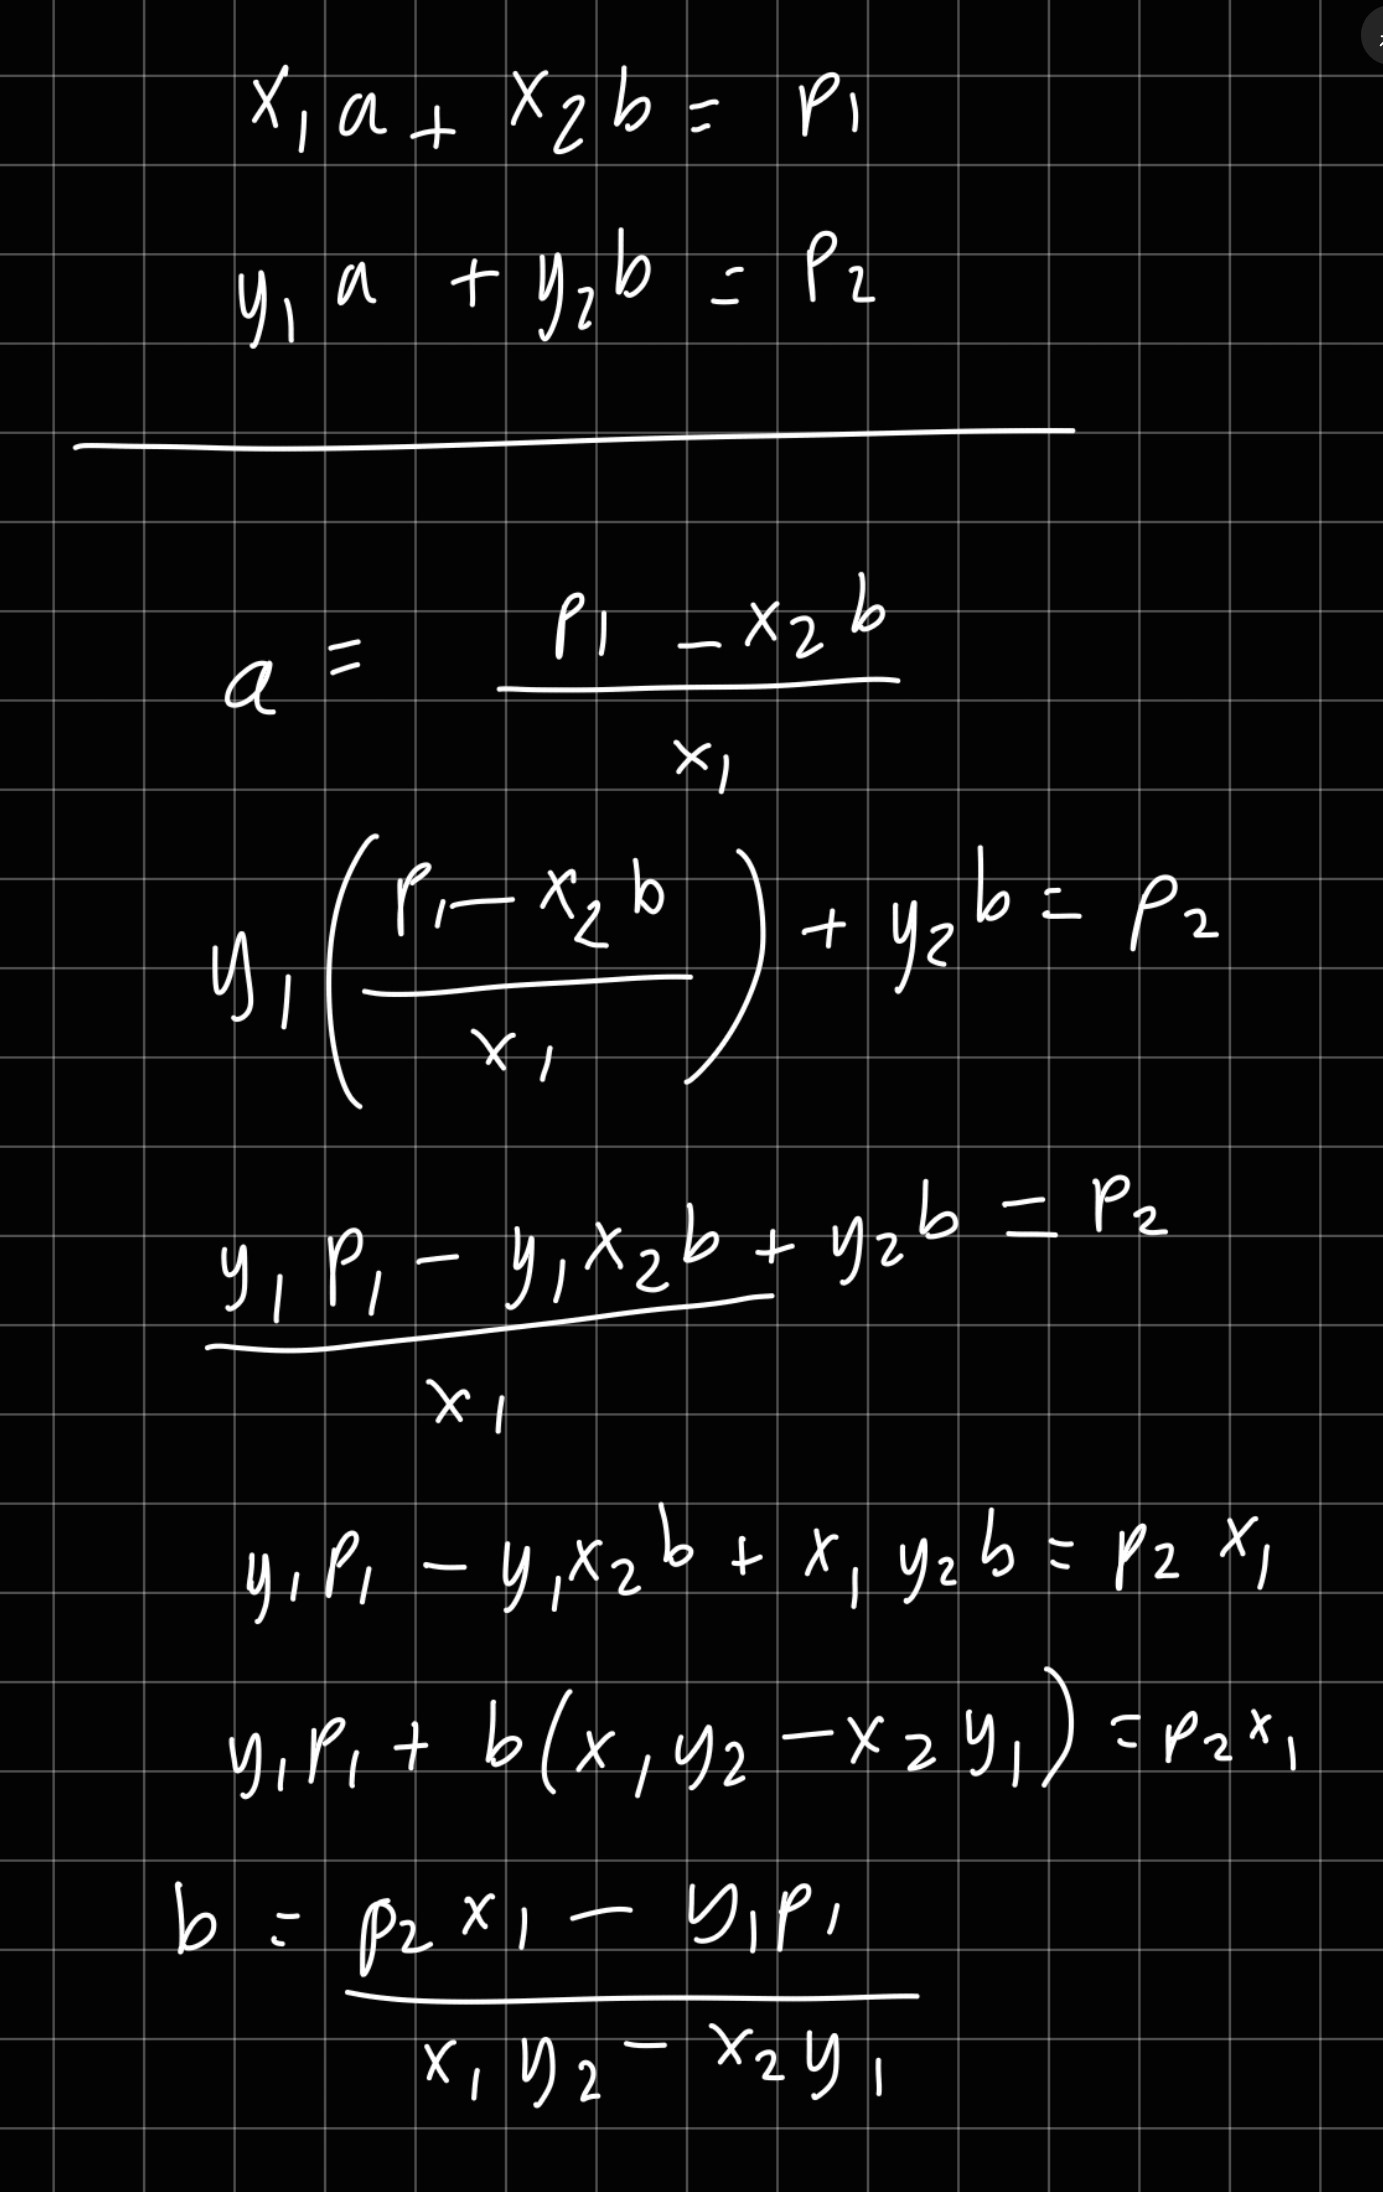 x₁a + x₂b = p₁
y₁a + y₂b = p₂
a = (p₁ - x₂b) / x₁
y₁((p₁ - x₂b) / x₁) + y₂b = p₂
(y₁p₁ - y₁x₂b) / x₁ + y₂b = p₂
y₁p₁ - y₁x₂b + x₁y₂b = p₂x₁
y₁p₁ + b(x₁y₂ - x₂y₁) = p₂x₁
b = (p₂x₁ - y₁p₁) / (x₁y₂ - x₂y₁)